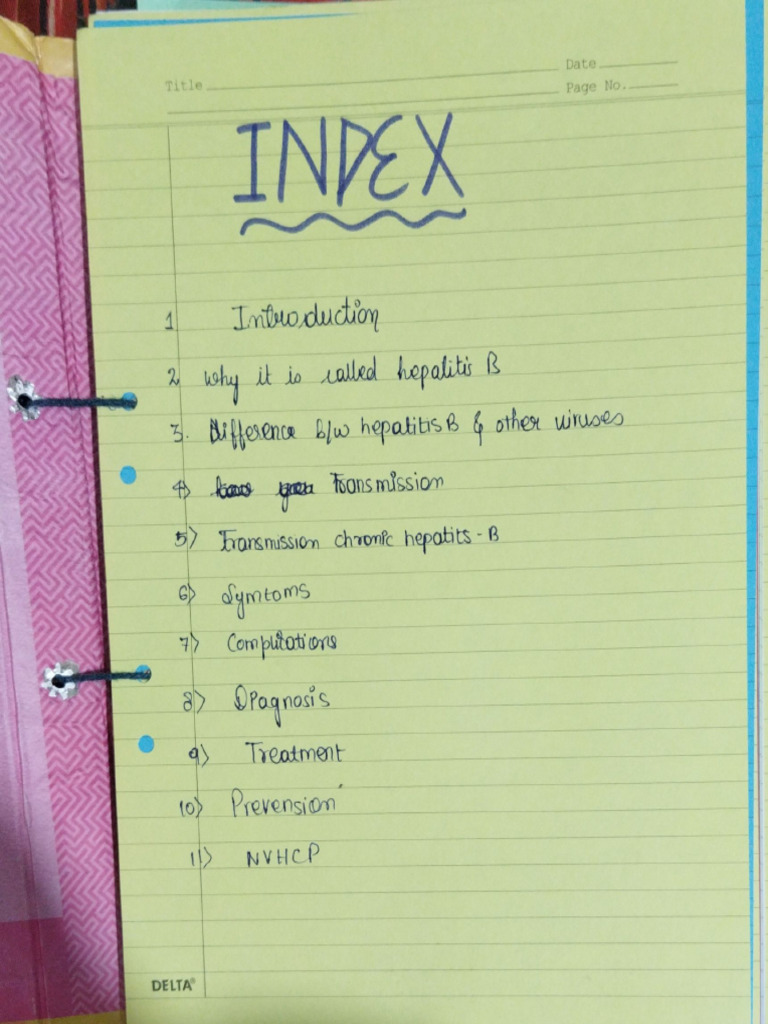 Date
Title
Page No.
INDEX
1 Introduction
2 why it is called hepatitis B
3. Difference b/w hepatitis B & other viruses
4) Transmission
5) Transmission chronic hepatits - B
6) Symtoms
7) Complitations
8) Diagnosis
9) Treatment
10) Prevension
11) NVHCP
DELTA®